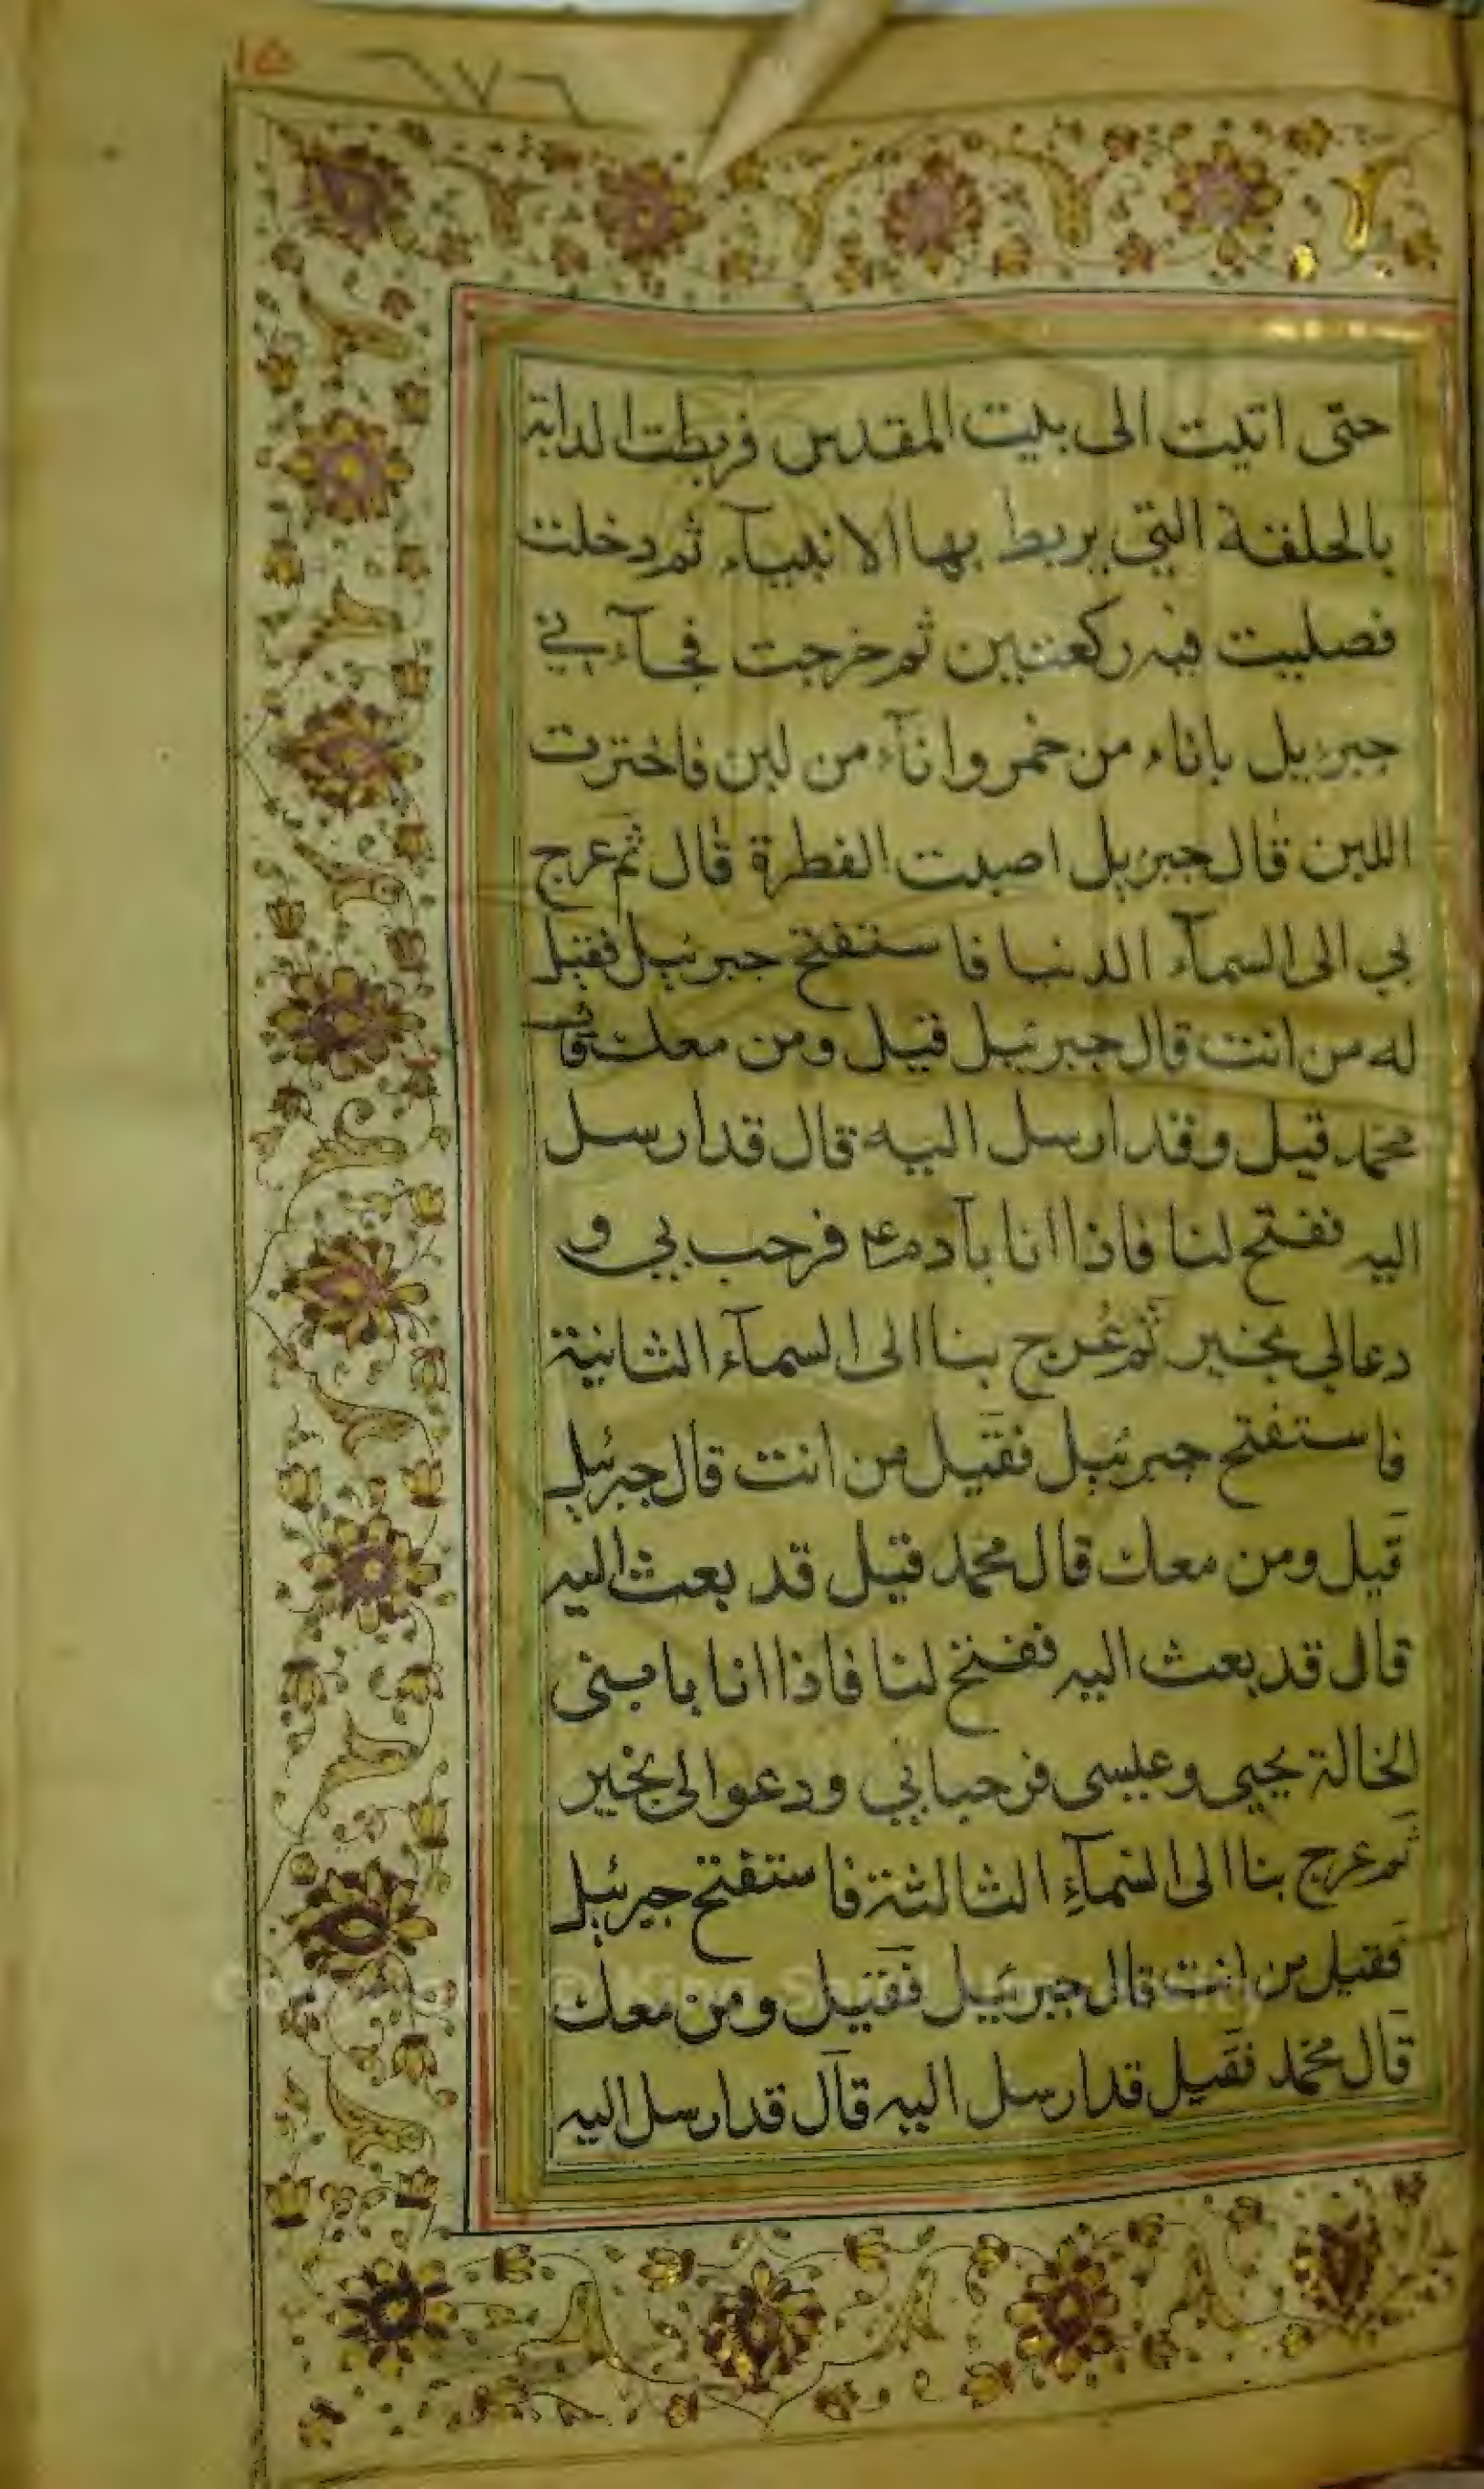 ١٥
٦٧٦
حتى اتيت الى بيت المقدس فربطت الدابة
بالحلقة التي يربط بها الانبيآء ثم دخلت
فصليت فيه ركعتين ثم خرجت فجآءني
جبرئيل باناء من خمر وانآء من لبن فاخترت
اللبن قال جبرئيل اصبت الفطرة قال ثم عرج
بي الى السمآء الدنيا فاستفتح جبرئيل فقيل
له من انت قال جبرئيل قيل ومن معك قال
محمد قيل وقد ارسل اليه قال قد ارسل
اليه ففتح لنا فاذا انا بآدم ع فرحب بي و
دعا لي بخير ثم عُرج بنا الى السمآء الثانية
فاستفتح جبرئيل فقيل من انت قال جبرئيل
قيل ومن معك قال محمد قيل قد بعث اليه
قال قد بعث اليه ففتح لنا فاذا انا بابني
الخالة يحيى وعيسى فرحبا بي ودعوا لي بخير
ثم عرج بنا الى السمآءِ الثالثة فاستفتح جبرئيل
فقيل من انت قال جبرئيل فقيل ومن معك
قال محمد فقيل قد ارسل اليه قال قد ارسل اليه
Copyright © King Saud University